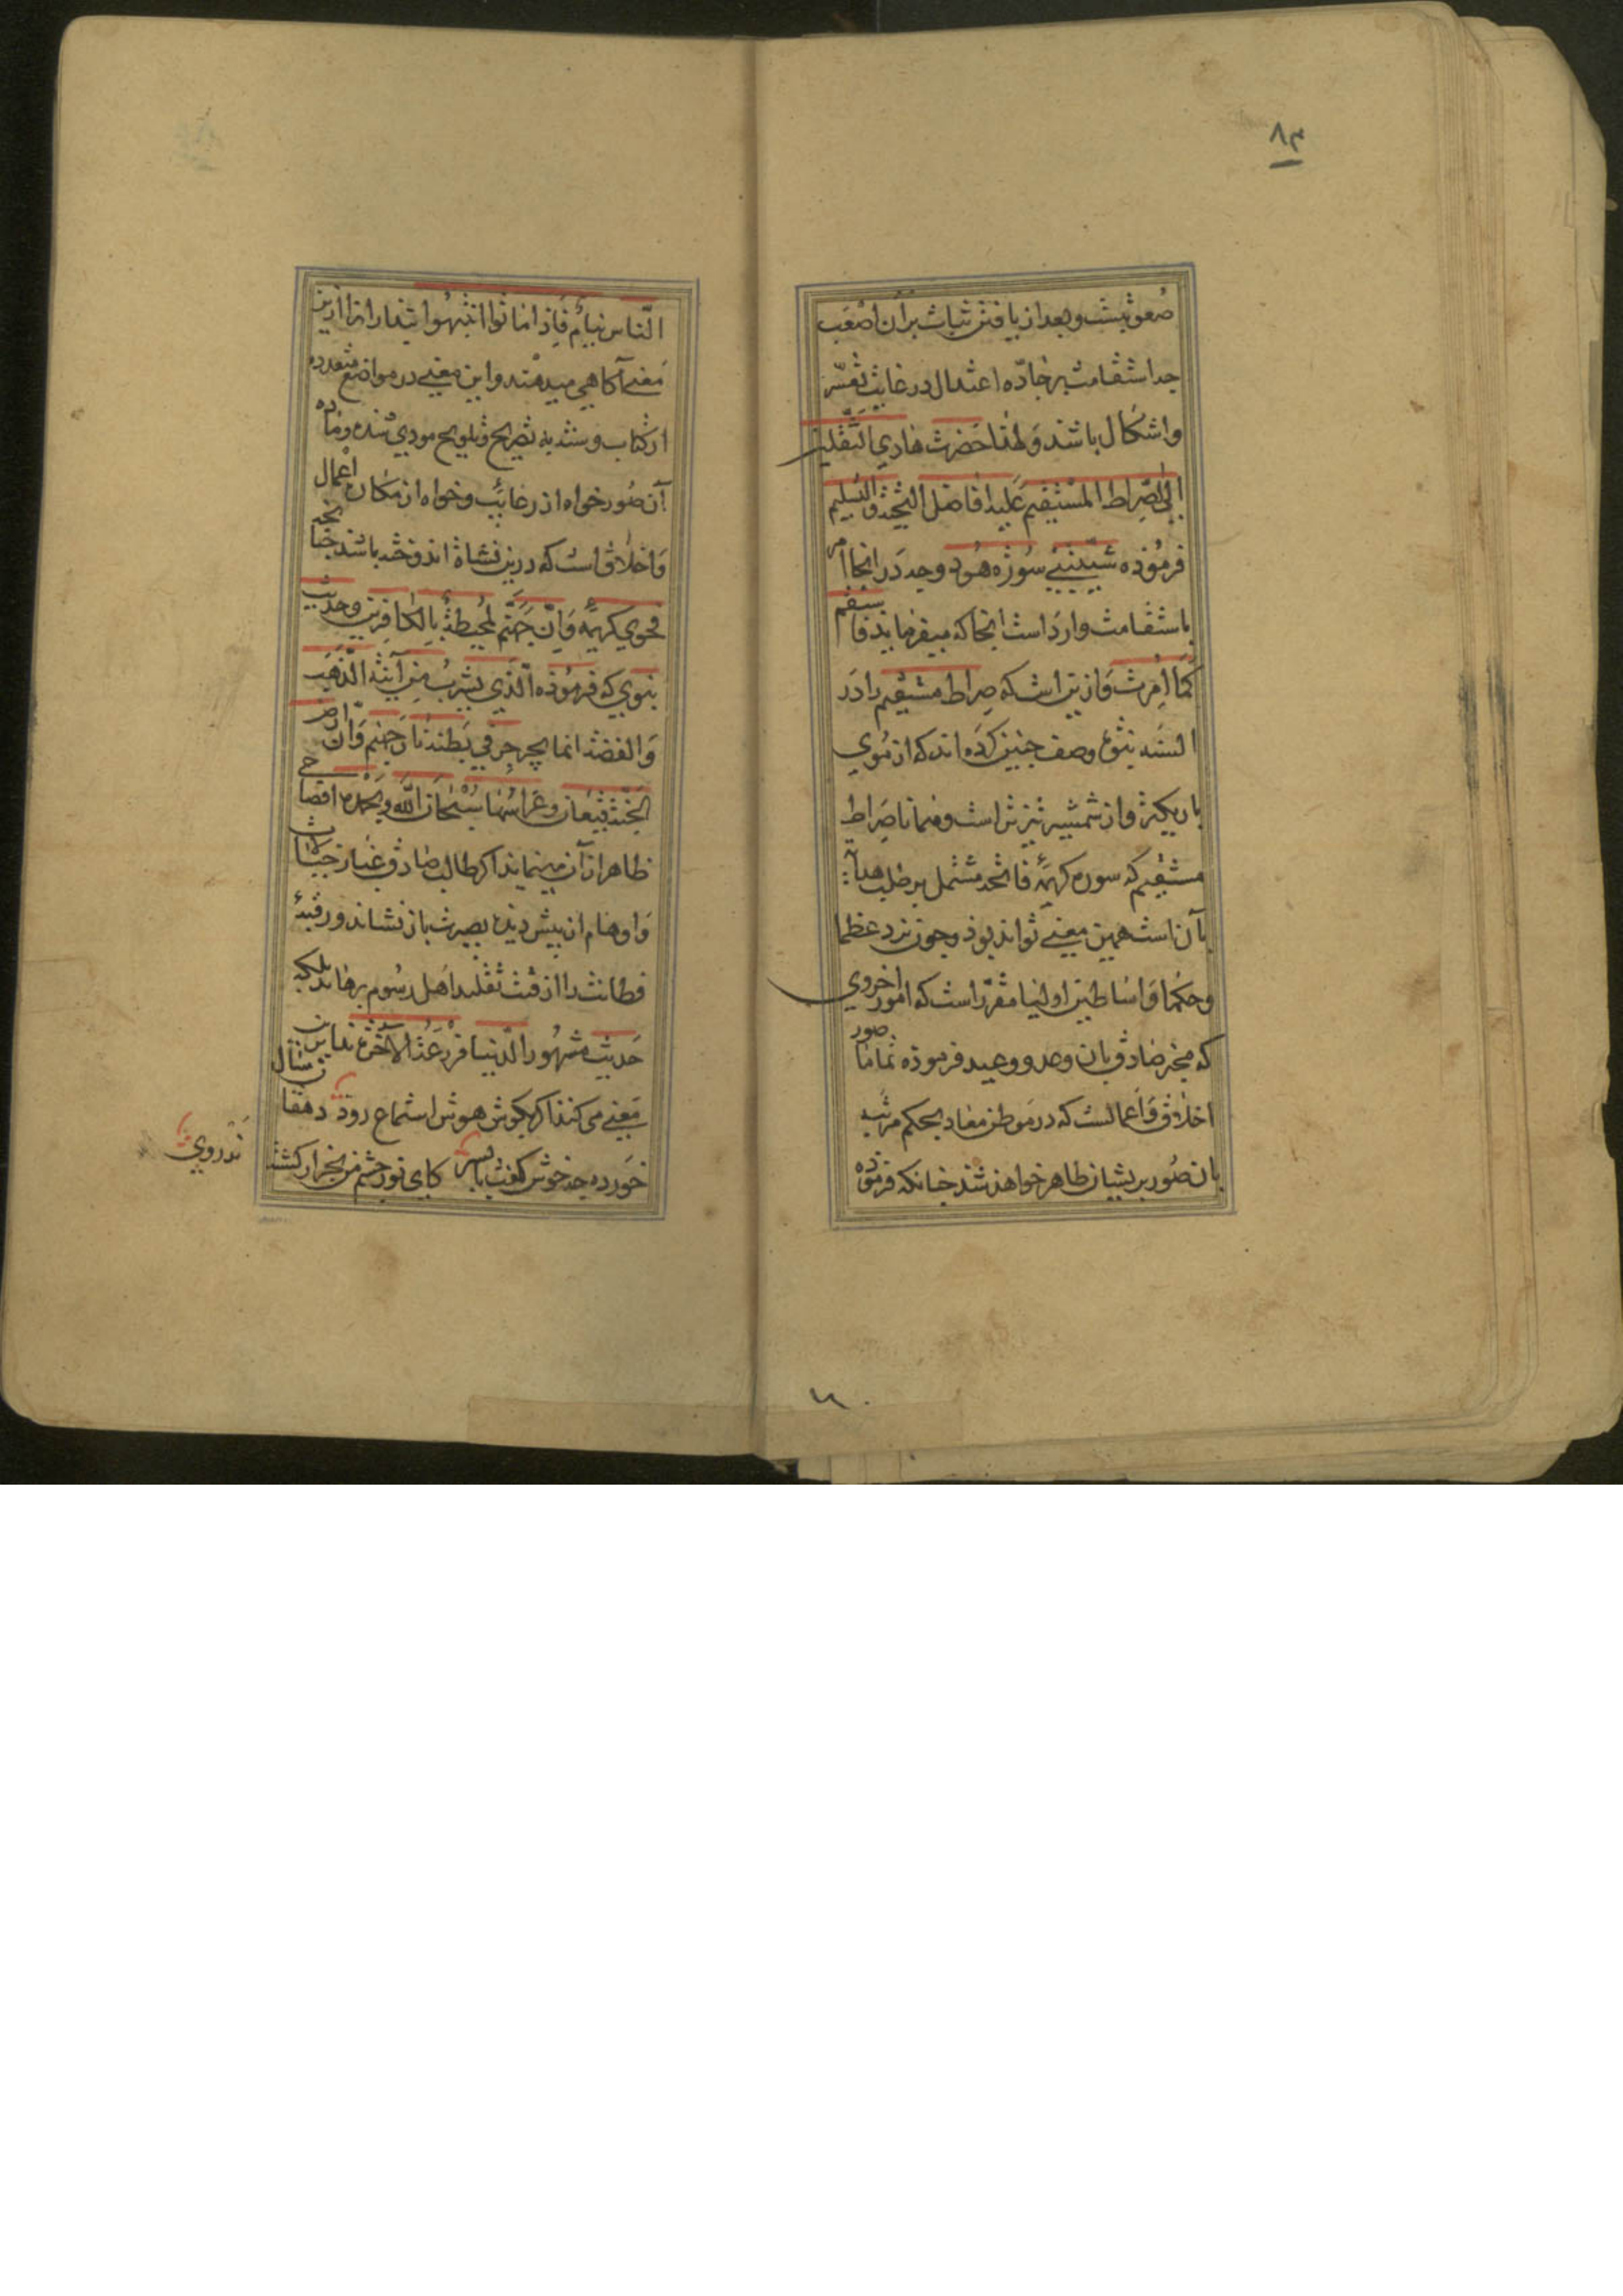 ۸۳
صعوبتست و بعد از یافتن ثبات بران اصعب
چه استقامت بر جادّه اعتدال در غایت تعسّر
و اشکال باشد و لهذا حضرت هادی الثقلین
الی الصّراط المستقیم علیه افاضل التّحیّة و التسلیم
فرموده شیّبتنی سوره هود چه در انجا امر
باستقامت وارد است انجا که میفرماید فاستقم
کما امرت و ازین است که صراط مستقیم را در
السنه نبوّت وصف چنین کرده اند که از موی
باریکتر و از شمشیر تیزتر است و همانا صراط
مستقیم که سوره کریمه فاتحه مشتمل بر طلب هدآیة
بآن است همین معنی تواند بود و چون نزد عظما
و حکما و اساطین اولیا مقرّر است که امور اخروی
که مخبر صادق بان وعد و وعید فرموده تماما صور
اخلاق و اعمالست که در موطن معاد بحکم مراتب
بان صور بریشان ظاهر خواهند شد چنانکه فرموده
النّاس نیام فاذا ماتوا انتبهوا بیدارانرا ازین
معنی آگاهی میدهند و این معنی در مواضع متعدده
از کتاب و سنت به تصریح و تلویح مودی شده و ماده
آن صور خواه از رغایب و خواه از مکان اعمال
و اخلاق است که درین نشاة اندوخته باشند چنانچه
فحوی کریمه و انّ جهنّم لمحیطة بالکافرین و حدیث
نبوی که فرموده الّذی یشرب من آنیة الذّهب
و الفضّة انما یجرجر فی بطنه نار جهنم و انّ ارض
الجنّة قیعان و غراسها سبحان اللّه و بحمده افصاحی
ظاهر از آن مینماید اگر طالب صادق غبار خیالات
و اوهام از پیش دیده بصیرت باز نشاند و رقبهٔ
فطانت را از قید تقلید اهل رسوم برهاند بلکه
حدیث مشهور الّدنیا مزرعة الآخرة نداین
معنی می کند اگر بگوش هوش استماع رود دهقان سال
خورده چه خوش گفت با پسر کای نور چشم من بجز از کشته
ندروی